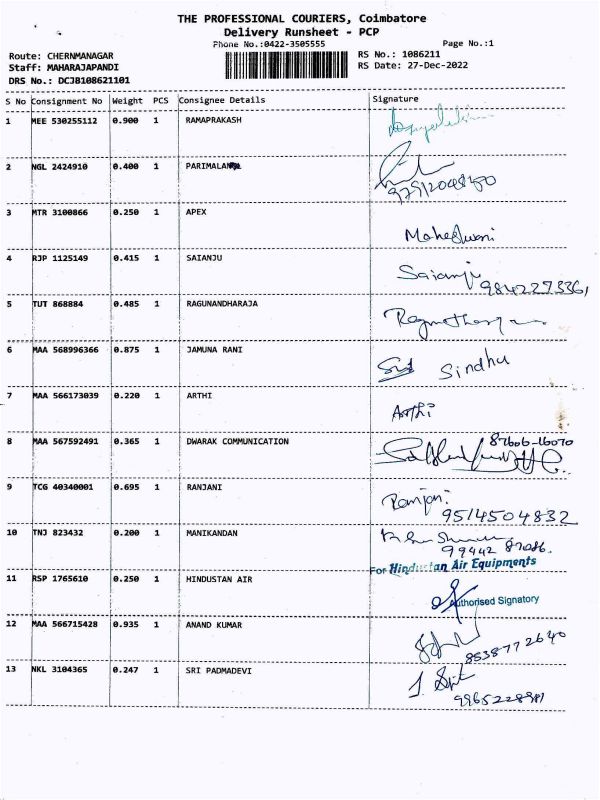 THE PROFESSIONAL COURIERS, Coimbatore
Delivery Runsheet - PCP
Phone No.:0422-3505555
Page No.:1
Route: CHERNMANAGAR
RS No.: 1086211
Staff: MAHARAJAPANDI
RS Date: 27-Dec-2022
DRS No.: DCJB108621101
S No Consignment No Weight PCS Consignee Details Signature
1 MEE 530255112 0.900 1 RAMAPRAKASH
2 NGL 2424910 0.400 1
3 MTR 3100866 0.250 1 APEX
Maheshwari
4 RJP 1125149 0.415 1 SAIANJU
Saianju
9842273361
5 TUT 868884 0.485 1 RAGUNANDHARAJA
6 MAA 568996366 0.875 1 JAMUNA RANI
Sindhu
7 MAA 566173039 0.220 1 ARTHI
Arthi
8 MAA 567592491 0.365 1 DWARAK COMMUNICATION
87606-16070
9 TCG 40340001 0.695 1 RANJANI
Ranjani
9514504832
10 TNJ 823432 0.200 1 MANIKANDAN
For Hindustan Air Equipments
11 RSP 1765610 0.250 1 HINDUSTAN AIR
Authorised Signatory
12 MAA 566715428 0.935 1 ANAND KUMAR
8538772640
13 NKL 3104365 0.247 1 SRI PADMADEVI